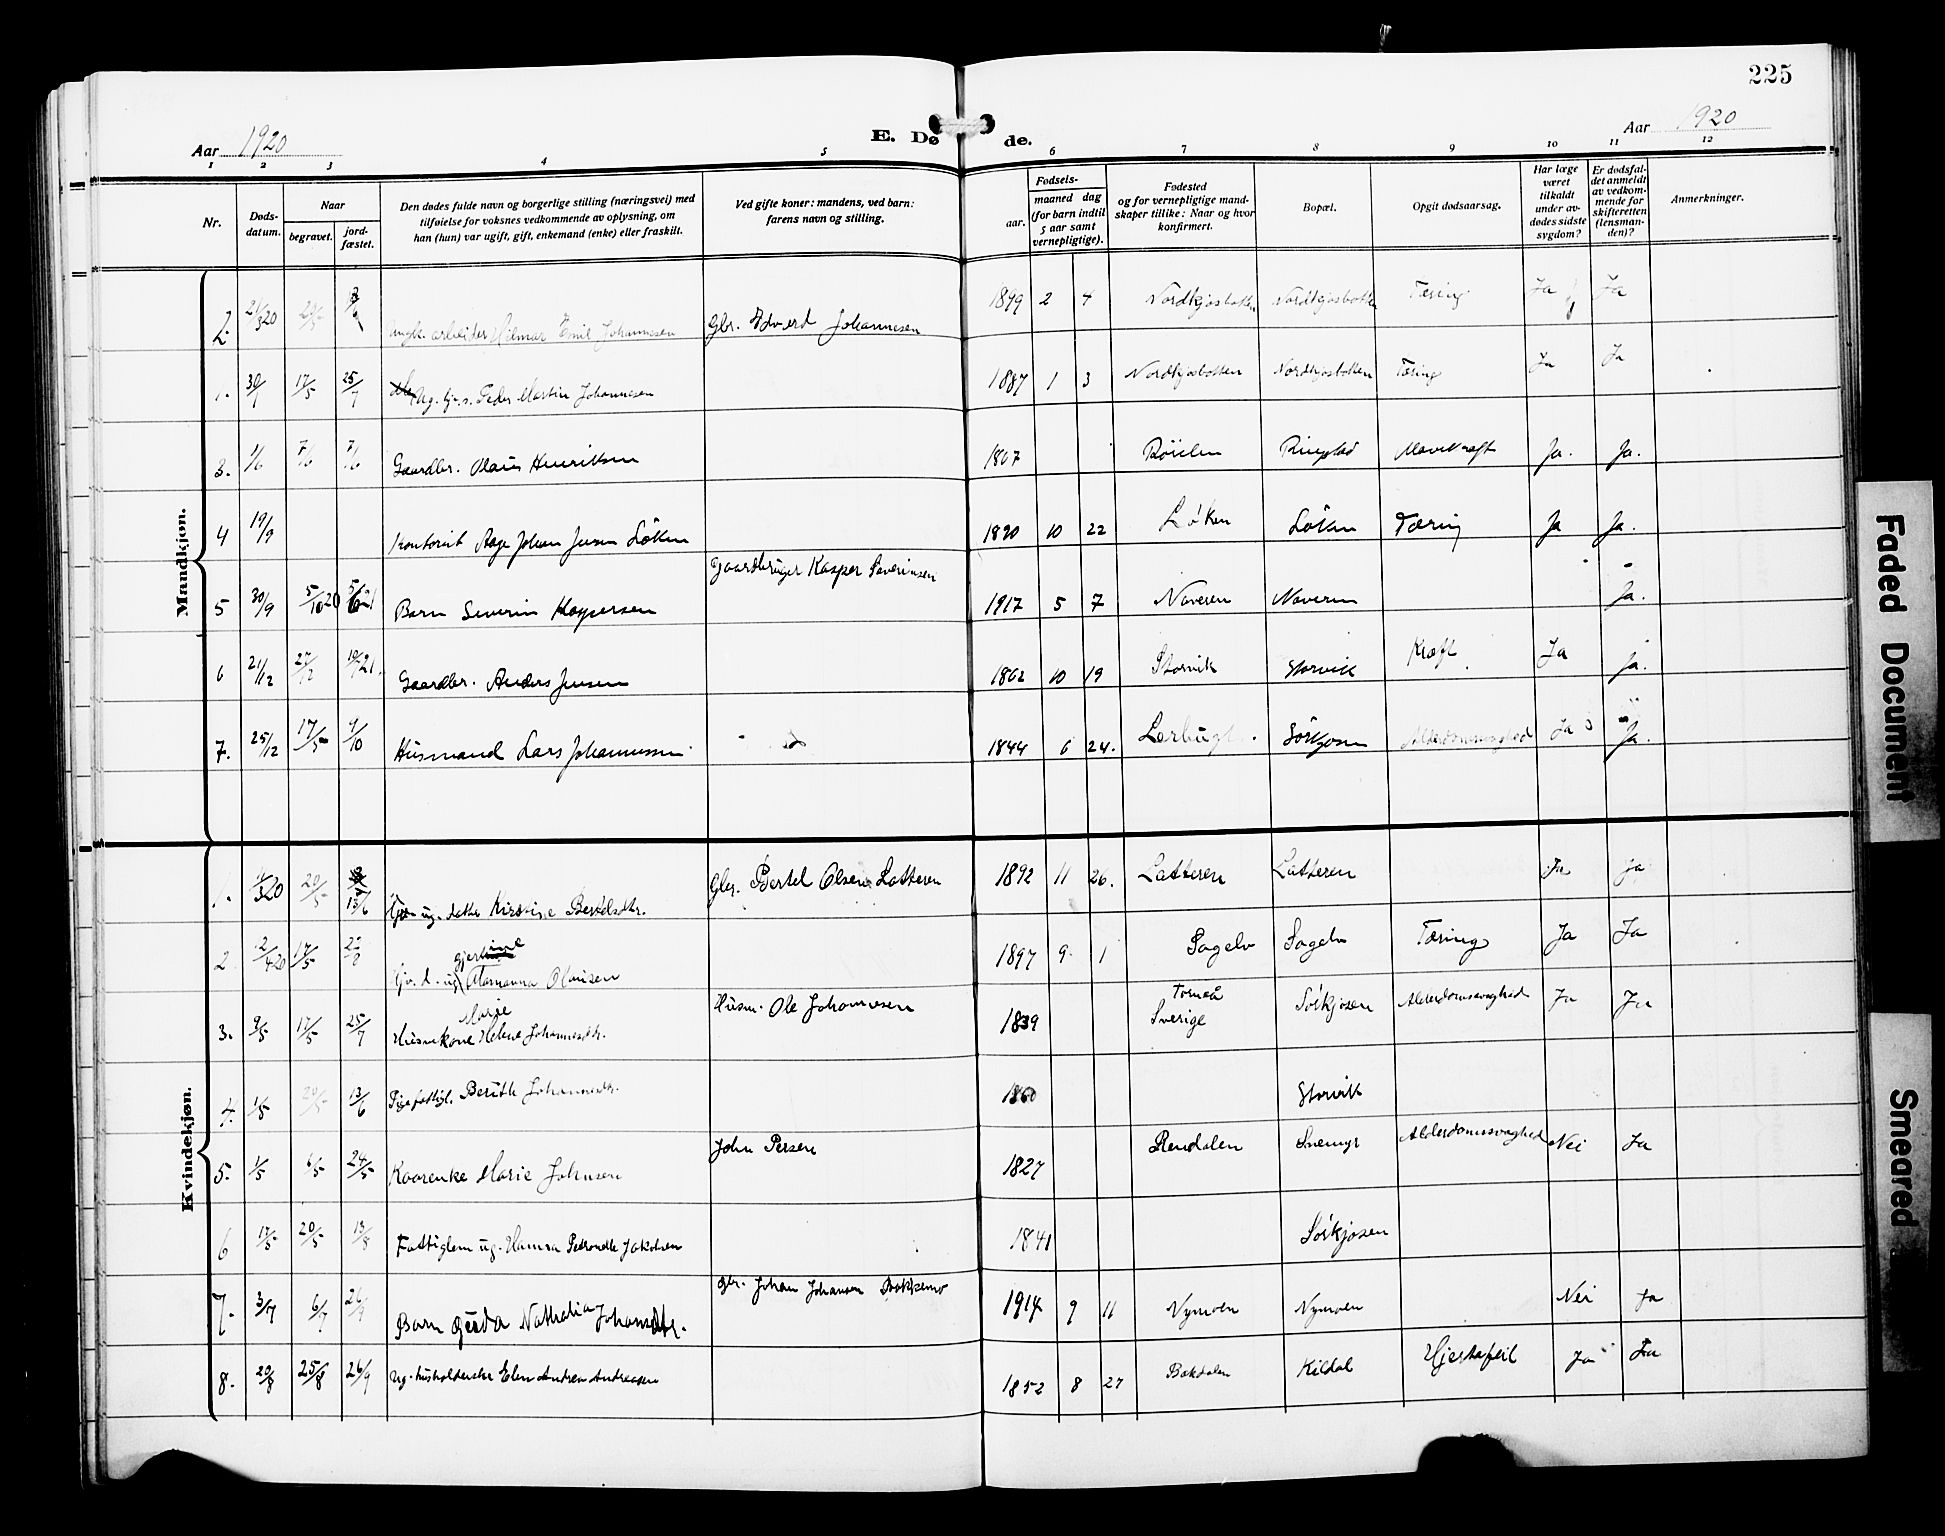 225
Aar 1920
E. Døde.
Aar 1920
1 2 3 4 5 6 7 8 9 10 11 12
Nr.
Døds-datum.
Naar
begravet.
jord-fæstet.
Den dødes fulde navn og borgerlige stilling (næringsvei) med
tilføielse for voksnes vedkommende av oplysning, om
han (hun) var ugift, gift, enkemand (enke) eller fraskilt.
Ved gifte koner: mandens, ved barn:
farens navn og stilling.
Fødsels-
aar.
maaned dag
(for barn indtil
5 aar samt
vernepligtige).
Fødested
og for vernepligtige mand-
skaper tillike: Naar og hvor
konfirmert.
Bopæl.
Opgit dødsaarsag.
Har læge
været
tilkaldt
under av-
dødes sidste
sygdom?
Er dødsfal-
det anmeldt
av vedkom-
mende for
skifteretten
(lensman-
den)?
Anmerkninger.
Mandkjøn.
2. 21/3 20 arbeider Hilmar Emil Johannesen Gbr. Edverd Johannesen 1899 2 4 Nordkjosbotten Nordkjosbotten Tæring Ja Ja
1. 30/1 17/5 25/7 Ug. Peder Martin Johannesen 1887 1 3 Nordkjosbotten Nordkjosbotten Tæring Ja Ja
3. 1/6 7/6 7/6 Gaardbr. Olaus Henriksen 1867 Ringstad Mavekræft Ja. Ja.
4 19/9 Kontorist Aage Johan Jensen Löken 1890 10 22 Løken Løken Tæring Ja Ja.
5 30/9 5/10 20 5/6 21 Barn Severin Kaspersen Gaardbruger Kasper Severinsen 1917 5 7 Naveren Naveren Ja.
6 21/12 27/12 21. Gaardbr. Anders Jensen 1862 10 19 Storvik Storvik Kræft Ja Ja.
7. 25/12 17/5 9/10 Husmand Lars Johannessen 1844 6 24. Lerbugt. Sörkjosen Alderdomsvaghed Ja Ja.
Kvindekjøn.
1. 20/5 13/6 ug. datter Kirstine Bertelsdtr. Gbr. Bertel Olsen Latteren 1892 11 26. Latteren Latteren Ja Ja
2 2/4 20 17/5 ug. Marianna Olausen 1897 9 1 Sagelv Sagelv Tæring Ja Ja
3. 9/5 17/5 25/7 Huskone Marie Helene Johannesdtr. Husm. Ole Johannesen 1839 Torneå Sverige Sörkjosen Alderdomsvaghed Ja Ja
4. 1/5 20/5 13/6 Berith Johannesdtr. 1860 Storvik
5. 1/5 6/5 24/5 Kaarenke Marie Johnsen John Persen 1827 Rendalen Snemyr Alderdomsvaghed Nei Ja
6 17/5 20/5 13/8 Fattiglem ug. Hanna Petronelle Jakobsen 1841 Sörkjosen
7. 3/7 6/7 26/9 Barn Gerda Nathalia Johansdtr. Gbr. Johan Johansen 1914 9 11 Nymoen Nymoen Nei Ja
8. 20/8 25/8 26/9 Ug. husholderske Elen Andrea Andreassen 1852 8 27 Bakdalen Kildal Hjertefeil Ja Ja
Faded Document
Smeared